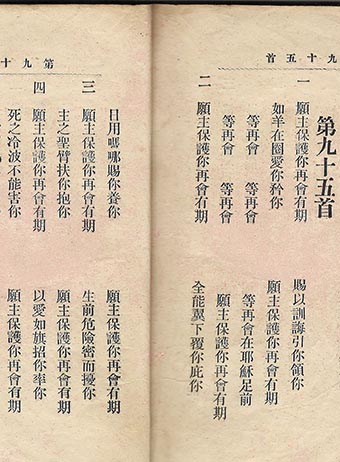 九十五首
第九十五首
一
願主保護你再會有期 賜以訓誨引你領你
如羊在圈愛你矜你 願主保護你再會有期
等再會 等再會 等再會在耶穌足前
等再會 等再會 願主保護你再會有期
二
願主保護你再會有期 全能翼下覆你庇你
第九十
日用嗎哪賜你養你 願主保護你再會有期
三
願主保護你再會有期 生前危險密而擾你
主之聖臂扶你抱你 願主保護你再會有期
四
願主保護你再會有期 以愛如旗招你率你
死之冷波不能害你 願主保護你再會有期